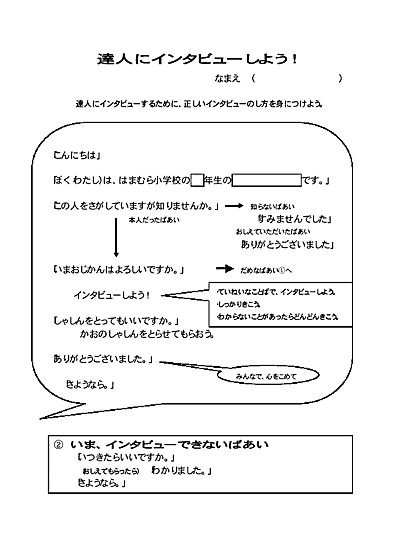 達人にインタビューしよう！
なまえ （　　　　　　　　　）
達人にインタビューするために、正しいインタビューのし方を身につけよう。
「こんにちは」
「ぼく(わたし)は、はまむら小学校の□年生の　　　　　です。」
「この人をさがしていますが知りませんか。」 → 知らないばあい
本人だったばあい
「すみませんでした」
おしえていただいたばあい
「ありがとうございました」
「いまおじかんはよろしいですか。」 → だめなばあい①へ
インタビューしよう！
・ていねいなことばで、インタビューしよう。
・しっかりきこう。
・わからないことがあったらどんどんきこう。
「しゃしんをとってもいいですか。」
かおのしゃしんをとらせてもらおう。
「ありがとうございました。」
みんなで、心をこめて
「さようなら。」
② いま、インタビューできないばあい
「いつきたらいいですか。」
(おしえてもらったら) 「わかりました。」
「さようなら。」